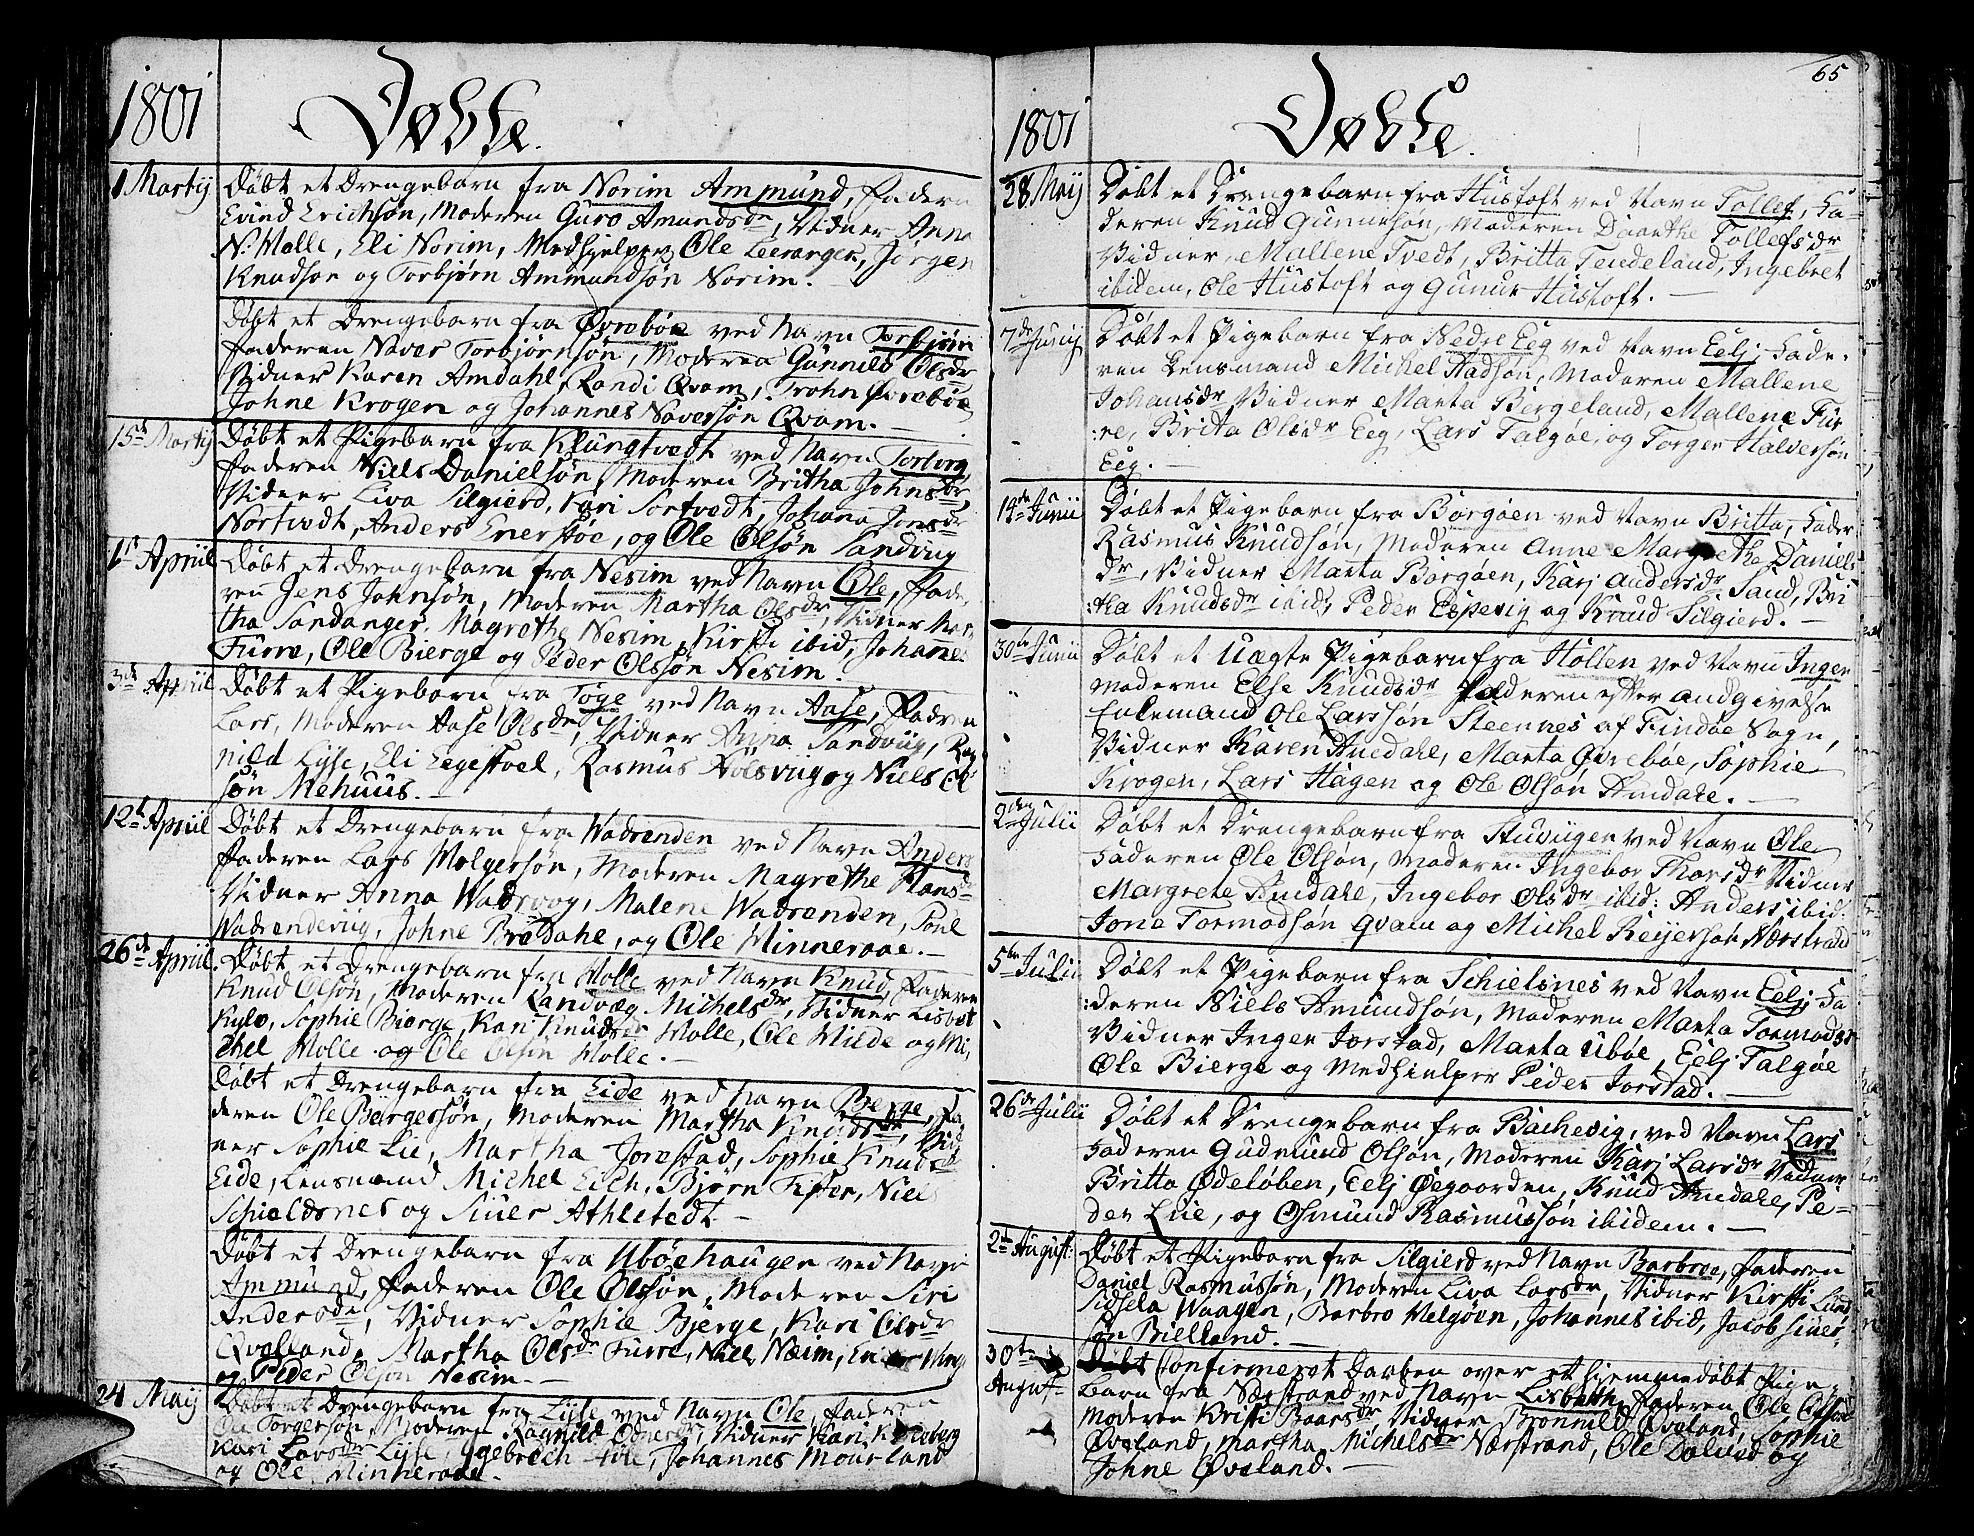 1801
Døbte.
1 Martij
Døbt et Drengebarn fra Norim Ammund, Faderen
Evind Erichsøn, Moderen Guro Amundsdr, Vidner Anna
N. Molle, Eli Norim, Medhjelper Ole Leerangen, Jørgen
Knudsøn og Torbjørn Ammundsøn Norim.
Døbt et Drengebarn fra Øvrebøe ved Navn Torbjørn
Faderen Naver Torbjørnsøn, Moderen Gunnild Olsdr
Vidner Karen Amdahl, Randi Qvam, Trohn Øvrebøe,
Johne Krogen og Johannes Naversøn Qvam.
15t Martij
Døbt et Pigebarn fra Klungtvedt ved Navn Torborg
Faderen Niels Danielsøn, Moderen Britha Johnsdr
Vidner Liva Silgierd, Kari Sortvedt, Johana Jonsdr
Nortvedt, Anders Enerstøe, og Ole Olsøn Sandvug
1t Apriil
Døbt et Drengebarn fra Nesim ved Navn Ole, Fade,
ren Jens Johnsøn, Moderen Martha Olsdr, Vidner Mar
tha Sandanger, Magrethe Nesim, Kirsti ibid, Johanes
Furre, Ole Bierge og Peder Olssøn Nesim.
3de Apriil
Døbt et Pigebarn fra Toge ved Navn Aase, Fadren
Lars, Moderen Aase Olsdr, Vidner Anna Sandviig, Rag
nild Lyse, Eli Eegestvel, Rasmus Holsviig og Niels El
søn Mehuus.
12t Apriil
Døbt et Drengebarn fra Wadrenden ved Navn Anders
Faderen Lars Molgersøn, Moderen Magrethe Hansdr
Vidner Anna Wadsvog, Malene Wadrenden, Poul
Wadrendeviig, Johne Brødahe, og Ole Minneraae.
26de Apriil
Døbt et Drengebarn fra Molle ved Navn Knud, Faderen
Knud Olsøn, Moderen Randvæg Michelsdr, Vidner Lisbet
Kylv, Sophie Bierge, Kari Knudsdr Molle, Ole Wilde og Mi,
chel Molle og Ole Olsøn Molle.
Døbt et Drengebarn fra Eide ved Navn Berge, Fa
deren Ole Børgersøn, Moderen Martha Knudsdr, Vid
ner Sophie Lie, Martha Jorestad, Sophie Knudsdr
Eide, Lensmand Michel Eich, Bjørn Fister, Niels
Schieldsnes og Siuer Athletedt.
Døbt et Drengebarn fra Ubøehaugen ved Navn
Ammund, Faderen Ole Olssøn, Moderen Siri
Andersdr, Vidner Sophie Bjerge, Kari Olsdr
Qvalland, Martha Olsdr Furre, Niels Næim,
og Peder Olsøn Nesim.
24 Maij
Døbt et Drengebarn fra Lyse ved Navn Ole, Faderen
Ole Torgersøn, Moderen Ragnild, Vidner Kari
Kari Larsdr Lyse, Johannes Mourland
og Ole Minneraae.
65
1801
Døbte.
28 Maij
Døbt et Drengebarn fra Hustoft ved Navn Tollef, Fa-
deren Knud Gunursøn, Moderen Daarthe Tollefsdr
Vidner, Mallene Tvedt, Britta Tendeland, Ingebret
ibidem, Ole Hustoft og Gunur Hustoft.
7de Junij
Døbt et Pigebarn fra Nedre Eeg ved Navn Eelj, Fade-
ren Lensmand Michel Hadsøn, Moderen Mallene
Johansdr Vidner Marta Bergeland, Mallene Fur
:re, Britta Olsdr Eeg, Lars Talgøe, og Torger Halversøn
Eeg.
14de Junii
Døbt et Pigebarn fra Borgøen ved Navn Britta, Fader
Rasmus Knudsøn, Moderen Anne Margrethe Daniels
dr, Vidner Marta Borgøen, Karj Andersdr Sand, Bri
:tha Knudsdr ibid, Peder Espevig og Knud Silgierd.
30te Junii
Døbt et Uægte Pigebarn fra Hollen ved Navn Ingen
Moderen Else Knudsdr Faderen efter andgivelse
Enkemand Ole Larssøn Steennes af Findøe Sogn,
Vidner Karen Amdahe, Marta Øvrebøe, Sophie
Krogen, Lars Hagen og Ole Olsøn Amdahe.
2den Julii
Døbt et Drengebarn fra Stuviigen ved Navn Ole
Faderen Ole Olsøn, Moderen Ingebor Thorsdr Vidner
Margrete Amdahe, Ingebor Olsdr ibid: Anders ibid:
Jone Tormodsøn Qvam og Michel Reijersøn Nærstrand
5te Julii
Døbt et Pigebarn fra Schielsnes ved Navn Eelj, Fa
:deren Niels Amundsøn, Moderen Marta Tormodsdr
Vidner Ingen Jorstad, Marta Ubøe, Eelj Talgøe
Ole Bierge og Medhielper Peder Jorstad.
26de Julii
Døbt et Drengebarn fra Bachevig, ved Navn Lars
Faderen Gudmund Olsøn, Moderen Karj Larsdr Vidner
Britta Ødeløben, Eelj Øegaarden, Knud Amdahe, Pe-
der Lie, og Osmund Rasmussøn ibidem.
2t August:
Døbt et Pigebarn fra Silgierd ved Navn Barbroe, Faderen
Daniel Rasmussøn, Moderen Liva Larsdr, Vidner Kirsti Lund
Sidsela Waagen, Barbro Melgøen, Johannes ibid, Jacob Siuer,
søn Bielland.
30te August
Døbt Confirmeret Daaben over et hjemmedøbt Pige-
barn fra Nærstrand ved Navn Lisbeth, Faderen Ole Olsøn
Moderen Kristi Baarsdr, Vidner Brønnild Øveland, Sophie
Øveland, Martha Michelsdr Nærstrand, Ole Dalvid og
Johne Øveland.